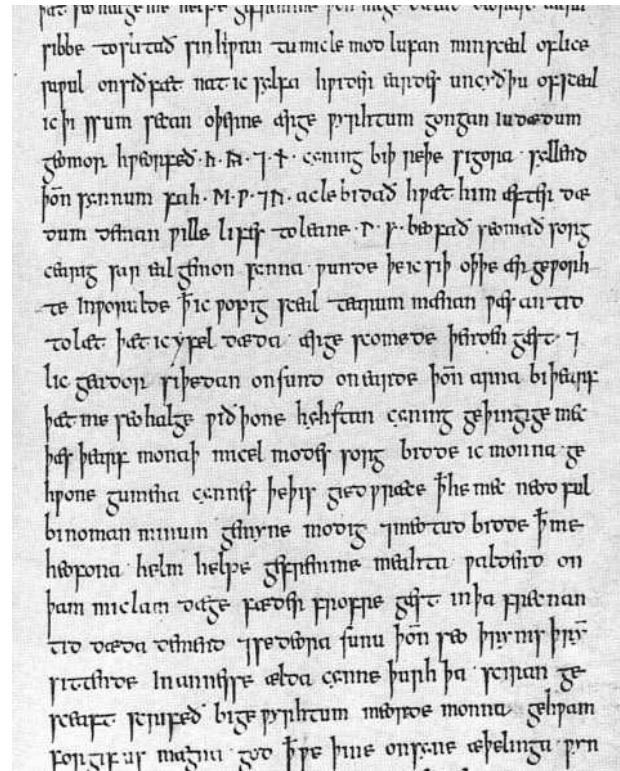 þæt seo halge me helpe gefremme þoñ me gedælað deorast ealra
sibbe toslitað sinhiƿan tu micle mod lufan min sceal oflice
saƿul onsið fæt nat ic sylfa hƿider eardes uncyðþu ofsceal
ic þissum secan oþerne ærge ƿyrhtum gongan iudædum
geomor hƿeorfeð · ᚳ · ᚣ · ⁊ · ᚾ · cyning biþ reþe sigora · syllend
þoñ synnum fah · ᛖ · ᚹ · ⁊ ᚢ · acle bidað hƿæt him æfter dæ
dum deman ƿille lifes toleane · ᛚ · ᚠ · beofað seomað sorg
cearig sar eal gemon synna ƿunde þe ic siþ oþþe ær geƿorh
te inƿorulde ꝥ ic ƿopig sceal tearum mænan ƿæs an tid
tolæt þæt ic yfel dæda ærge scomede þenden gæst · ⁊
lic geador siþedan onsund onearde þoñ arna biþearf
þæt me seohalge ƿið þone hehstan cyning geþingige mec
þæs þearf monaþ micel modes sorg bidde ic monna ge
hƿone gumena cynnes þeþis gied ƿræce ꝥ he mec neod ful
binoman minum gemyne modig ⁊meotud bidde ꝥ me
heofona helm helpe gefremme meahta ƿaldend on
þam miclam dæge fæder frofre gæst inþa frecnan
tid dæda demend ⁊sedeora sunu þoñ seo þrynis þrym̄
sittende inannesse ælda cynne þurh þa sciran ge
sceaft scrifeð bige ƿyrhtum meorde monna gehƿam
forgif us mægna god ꝥ ƿe þine onsyne æþelinga ƿyn